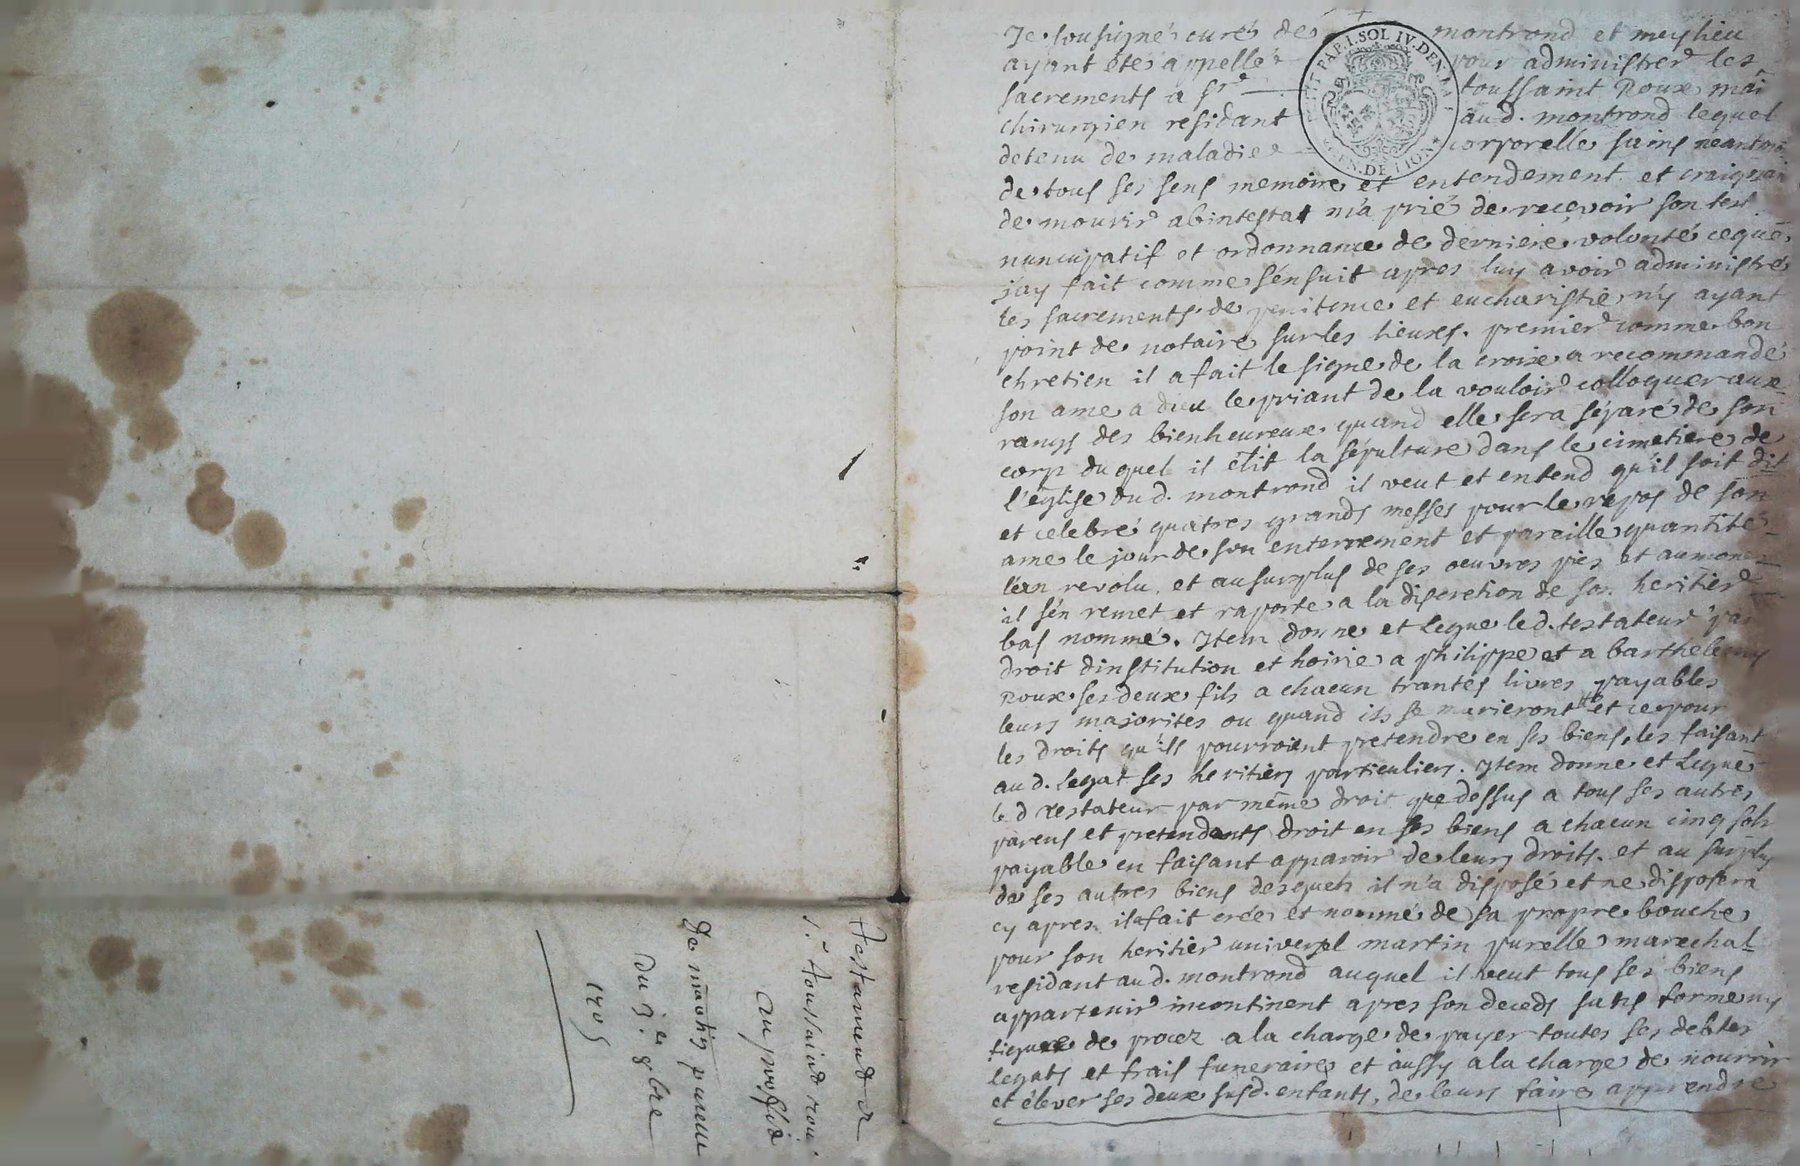 Je sousigné curé de montrond et meylieu
ayant été appellé pour administrer les
sacrements a sr toussaint Roux mai
chirurgien residant au d. montrond lequel
detenu de maladie corporelle sains neantm
de tous ses sens memoire et entendement et craignan
de mourir abintestat m'a prié de recevoir son test
nuncupatif et ordonnance de derniere volonté ceque
jay fait comme sensuit apres luy avoir administré
les sacrements de penitence et eucharistie n'y ayant
point de notaire sur les lieux. premier comme bon
chretien il a fait le signe de la croix a recommandé
son ame a dieu le priant de la vouloir colloquer aux
rangs des bienheureux quand elle sera séparé de son
corp duquel il élit la sépulture dans le cimetiere de
l'église du d. montrond il veut et entend qu'il soit dit
et celebré quatres grands messes pour le repos de son
ame le jour de son enterrement et pareille quantité
lan revolu. et au surplus de ses oeuvres pies et aumone
il s'en remet et raporte a la discretion de son heritier
bas nommé. Item donne et Legue le d. testateur par
droit dinstitution et hoirie a philippe et a barthelemy
Roux ses deux fils a chacun trantes livres payables
leurs majorites ou quand ils se marieront et ce pour
les droits qu'ils pourroient pretendre en ses biens, les faisant
au d. legat ses heritiers particuliers. Item donne et Legue
le d testateur par même droit que dessus a tous ses autres
parens et pretendants droit en ses biens a chacun cinq sols
payable en faisant apparoir de leurs droits. et au surplus
de ses autres biens desquels il n'a disposé et ne disposera
cy apres il a fait créé et nommé de sa propre bouche
pour son heritier universel martin purelle marechal
residant au d. montrond auquel il veut tous ses biens
appartenir incontinent apres son deceds sans forme ny
figure de procez a la charge de payer toutes ses debtes
legats et frais funeraires et aussy a la charge de nourrir
et élever ses deux susd. enfants, de leurs faire apprendre
PAPI. SOL IV. DEN. LA
GEN. DE LION
Testament de
sr toussaind roux
au proffid
de martin purelle
du 3e 8bre
1705